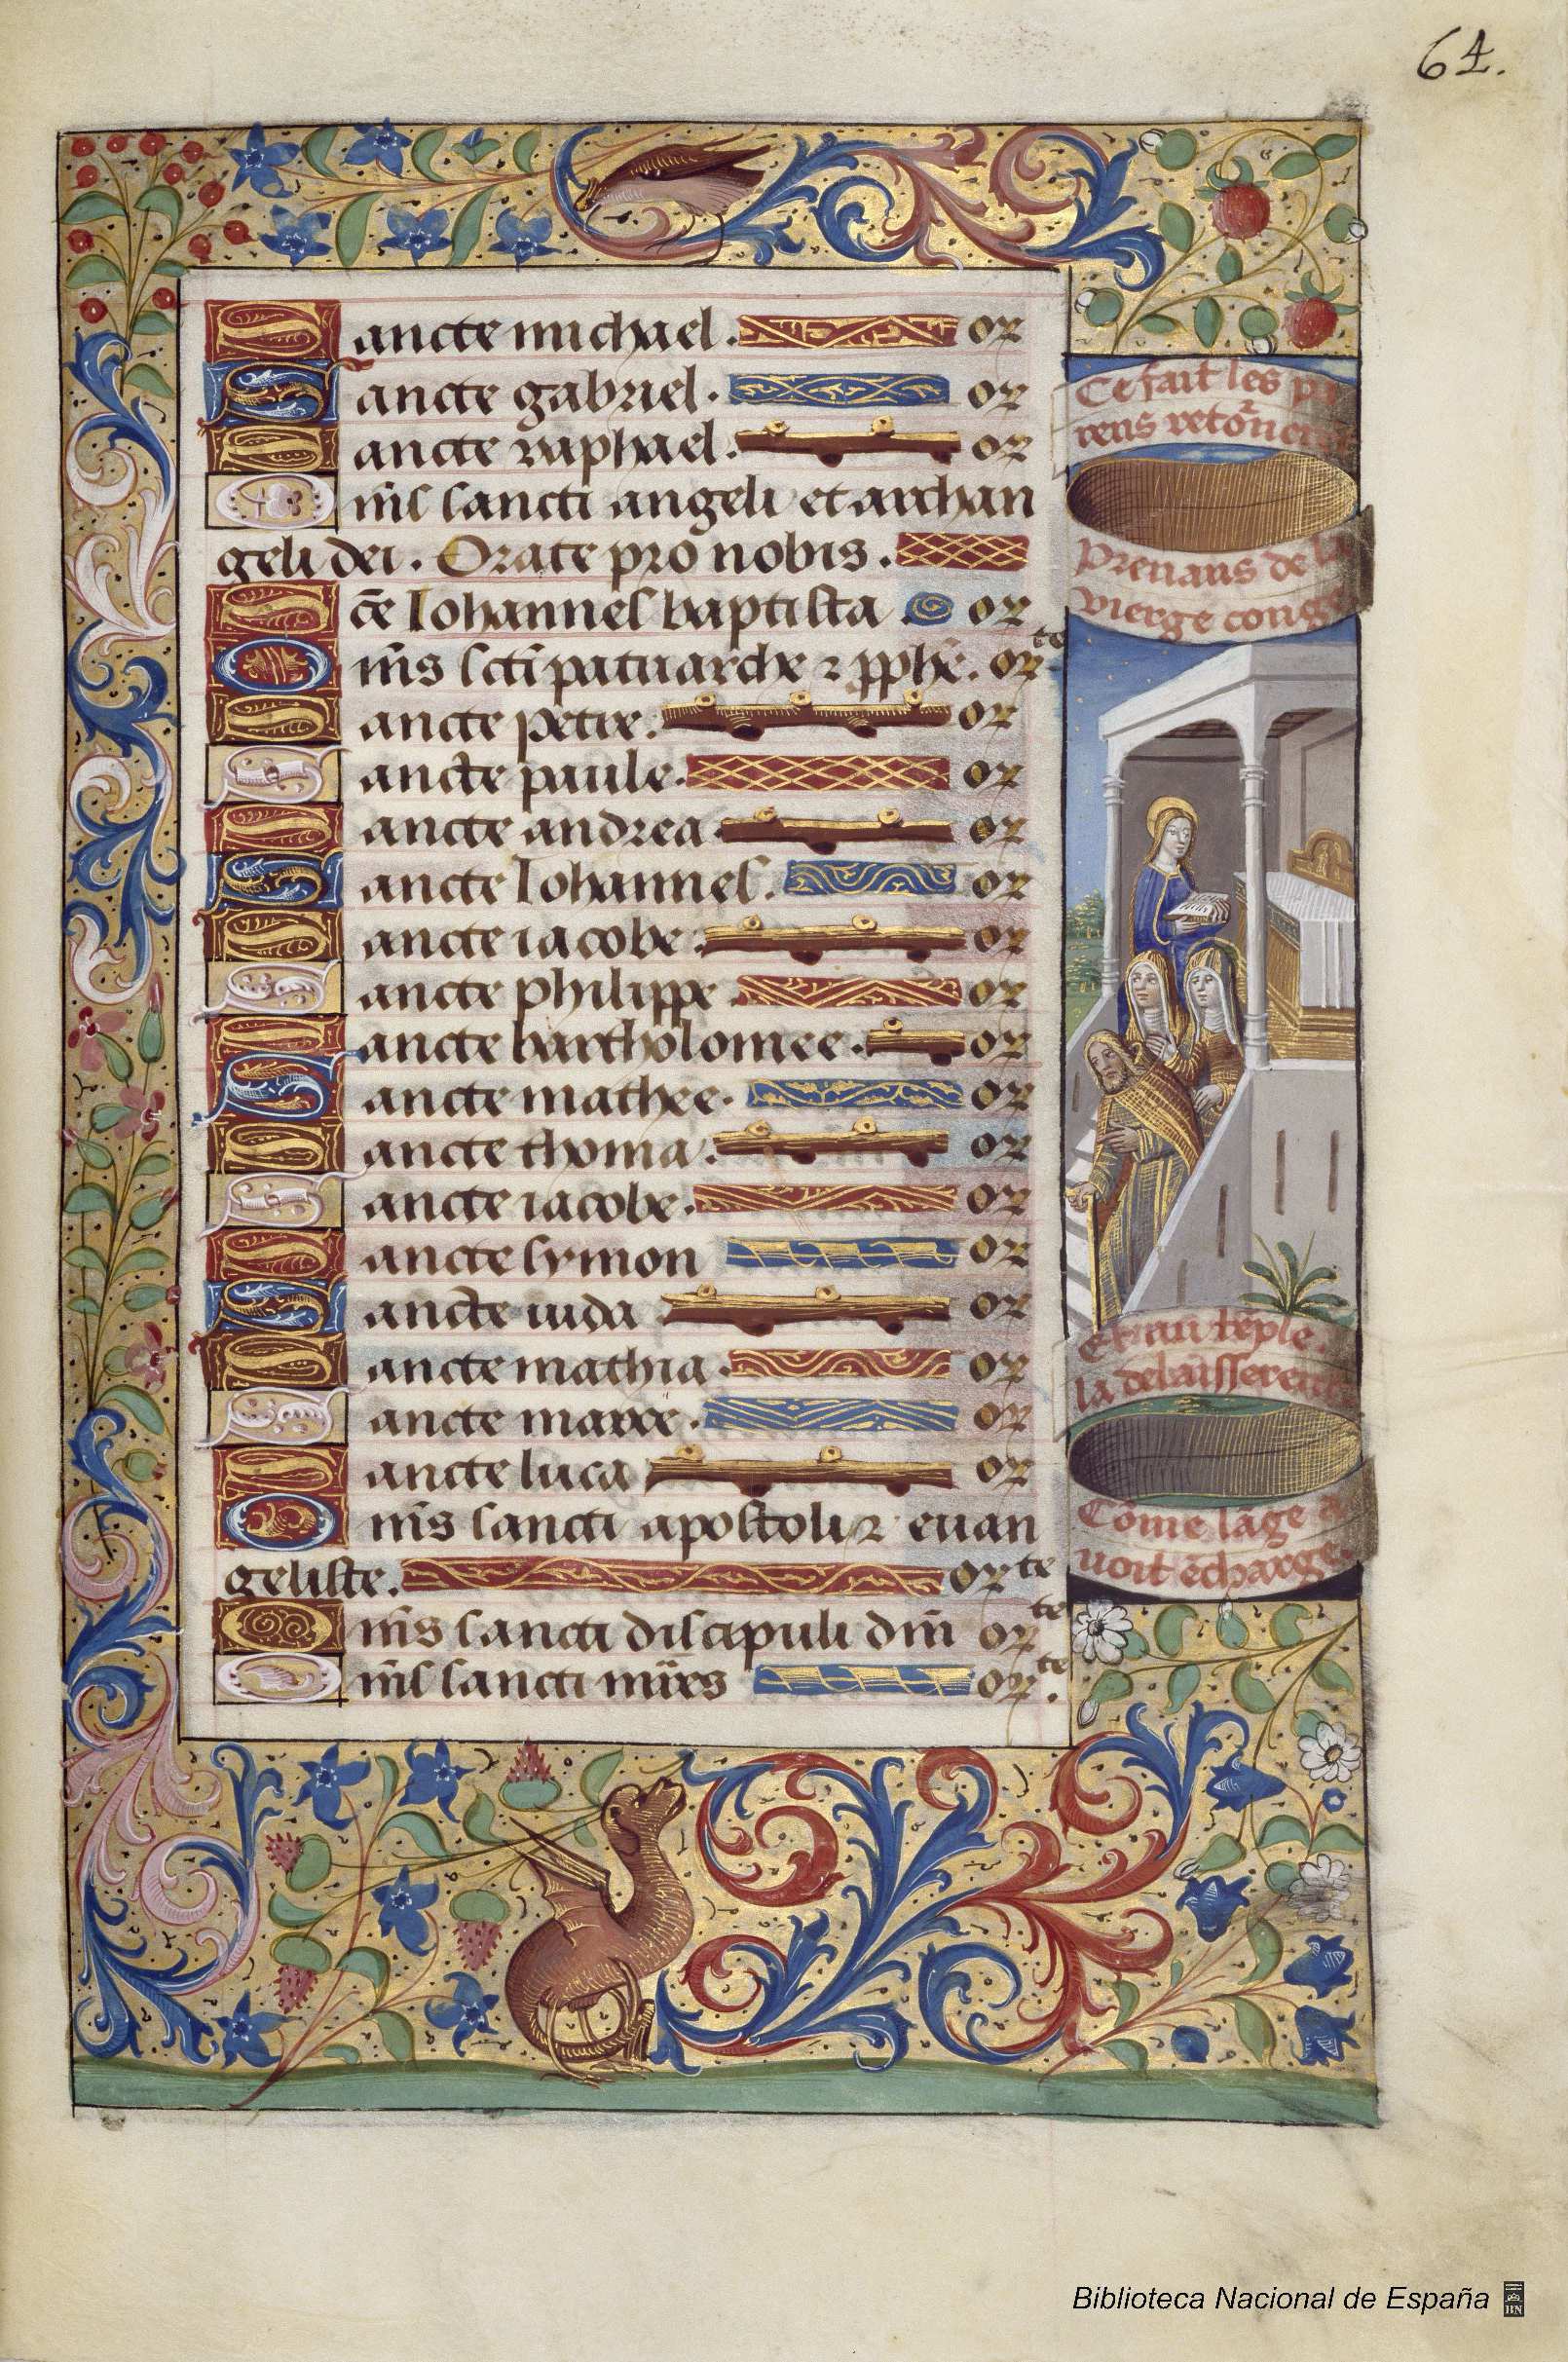 64.
Sancte michael. or
Sancte gabriel. or
Sancte raphael. or
Om̄s sancti angeli et archan
geli dei. Orate pro nobis.
Sc̄e Iohannes baptista or
Om̄s sc̄ti patriarche ⁊ ꝓph̄e. orte
Sancte petre. or
Sancte paule. or
Sancte andrea. or
Sancte Iohannes. or
Sancte iacobe. or
Sancte philippe or
Sancte bartholomee. or
Sancte mathee. or
Sancte thoma. or
Sancte iacobe. or
Sancte symon or
Sancte iuda or
Sancte mathia. or
Sancte marce. or
Sancte luca or
Om̄s sancti apostoli ⁊ euan
geliste. orte
Om̄s sancti discipuli dm̄i orte
Om̄s sancti mr̄es orte.
Ce fait les pa
rens retōnerēt
Prenans de la
vierge conge
Et au tēple
la delaisserent
Cōme lāge a
uoit ēcharge.
Biblioteca Nacional de España